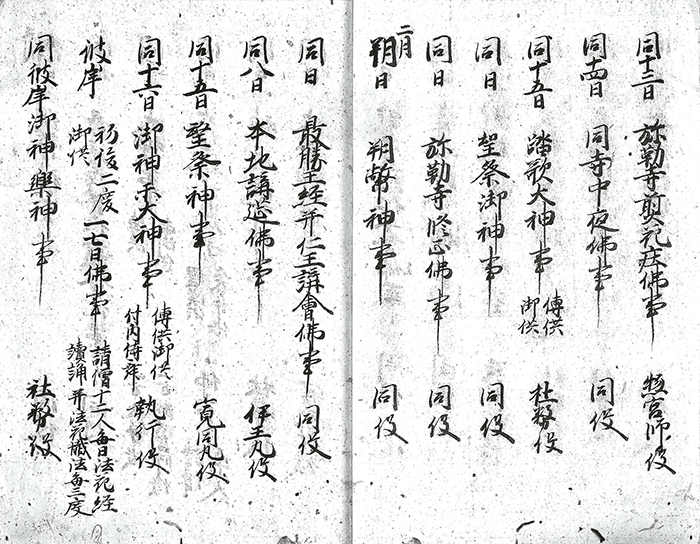 同十三日 弥勒寺剪花抜佛事 惣宮師役
同十四日 同寺中夜佛事 同役
同十五日 踏歌大神事 傳供御供 社務役
同日 聖祭御神事 同役
同日 弥勒寺修正佛事 同役
二月
朔日 朔幣神事 同役
同日 最勝王経并仁王講會佛事 同役
同八日 本地講延佛事 伊王丸役
同十五日 聖祭神事 寛同丸役
同十六日 御神天大神事 傳供御供 付内侍 執行役
彼岸 初後二度御供 一七日佛事 請僧十二人毎日法花経
讀誦并法花懺法毎三度
同彼岸御神輿神事 社務役